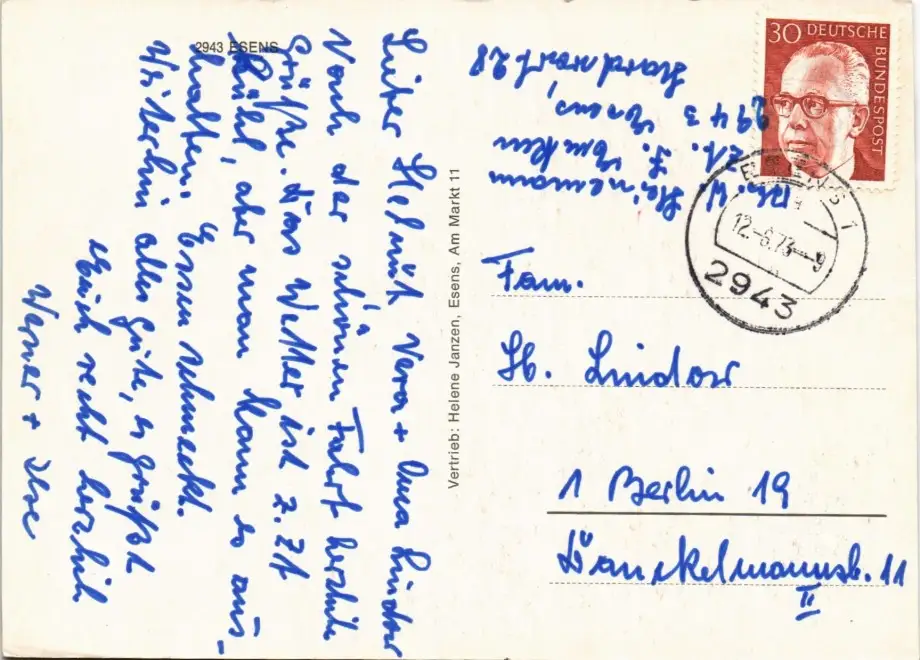 2943 ESENS
Lieber Helmut Vera + Oma Lindow
Nach der schönen Fahrt herzliche
Grüße. Das Wetter ist z. Zt
kühl, aber man kann es aus-
halten. Essen schmeckt.
Weiterhin alles gute, es grüßt
Euch recht herzlich
Werner + Ilse
Vertrieb: Helene Janzen, Esens, Am Markt 11
Heinemann
z. Zt.
2943 Esens
30 DEUTSCHE BUNDESPOST
ESENS 1
12.-6.73--9
2943
Fam.
H. Lindow
1 Berlin 19
Danckelmannstr. 11
II